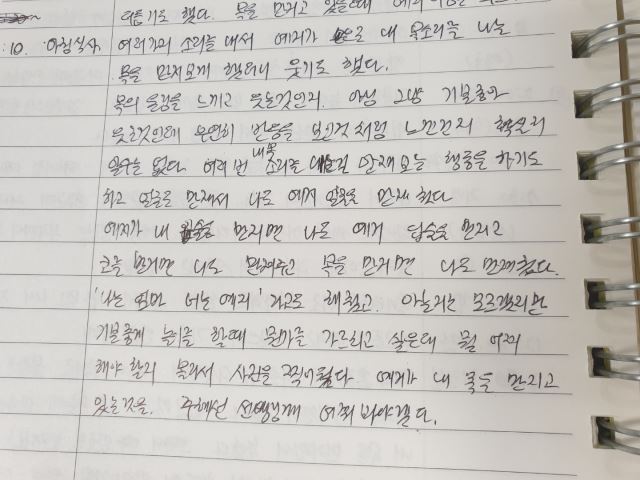 기도 했다. 목을 만지고 있을때
:10. 아침식사 여러가지 소리를 내서 예지가 내 목소리를 나는
목을 만지보게 했더니 웃기도 했다.
목의 울림을 느끼고 웃는것인지. 아님 그냥 기분좋아
웃는것인데 우연히 반응을 보인것 처럼 느낀건지 확실히
알수는 없다. 여러 번 내목 소리를 만져보는 행동을 하기도
하고 얼굴을 만져서 나도 예지 얼굴을 만져 줬다
예지가 내 입술을 만지면 나도 예지 입술을 만지고
코를 만지면 나도 만져주고 목을 만지면 나도 만져줬다.
'나는 엄마 너는 예지' 라고도 해줬고. 아는지는 모르겠지만
기분좋게 눈빛을 할때 뭔가를 가르치고 싶은데 뭘 어찌
해야 할지 몰라서 사진을 찍어뒀다 예지가 내 목을 만지고
있는것을. 주혜선 선생님께 여쭤 봐야겠다.